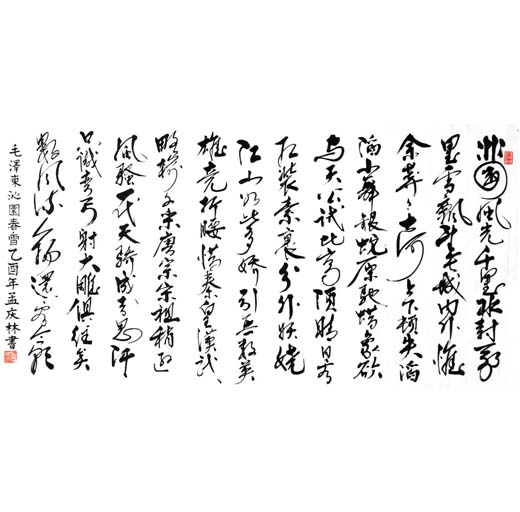 北國風光千里冰封萬
里雪飄望長城内外惟
余莽莽大河上下頓失滔
滔山舞銀蛇原馳蜡象欲
与天公試比高須晴日看
红装素裹分外妖娆
江山如此多娇引無数英
雄竞折腰惜秦皇漢武
略输文采唐宗宋祖稍逊
風骚一代天骄成吉思汗
只識弯弓射大雕俱往矣
數風流人物還看今朝
毛澤東沁園春雪乙酉年孟庆林書